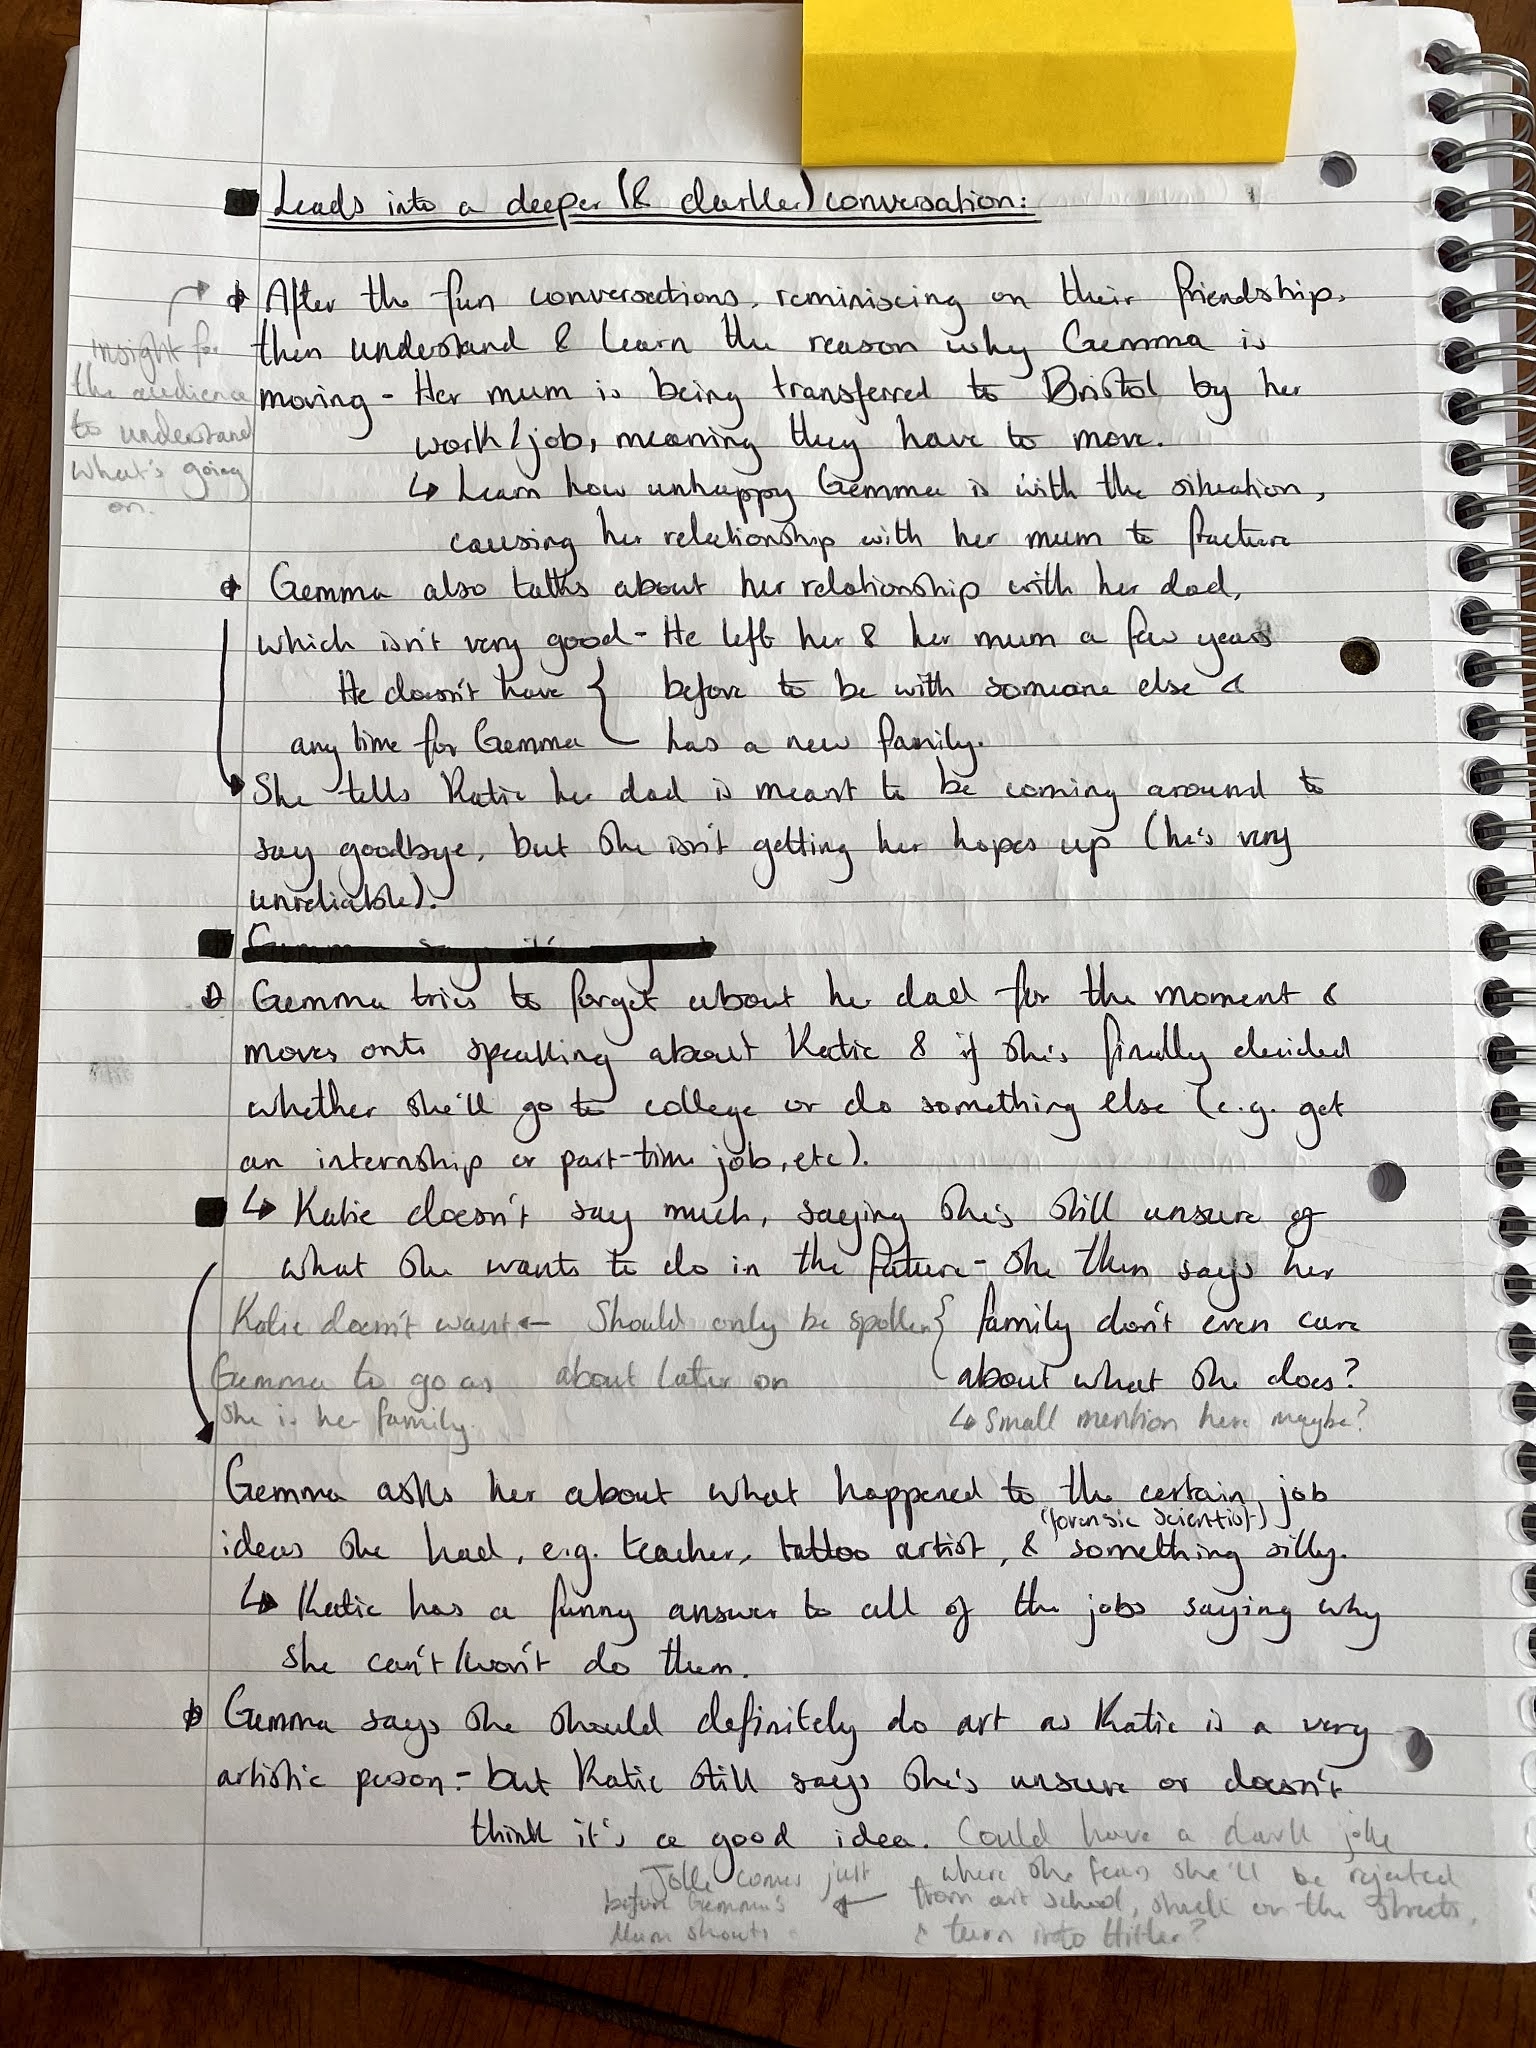 Leads into a deeper (& darker) conversation:
After the fun conversations, reminiscing on their friendship,
then understand & learn the reason why Gemma is
moving - Her mum is being transferred to Bristol by her
work/job, meaning they have to move.
Insight for
the audience
to understand
what's going
on.
↳ Learn how unhappy Gemma is with the situation,
causing her relationship with her mum to fracture
Gemma also talks about her relationship with her dad,
which isn't very good - He left her & her mum a few years
before to be with someone else &
has a new family.
He doesn't have
any time for Gemma
She tells Katie her dad is meant to be coming around to
say goodbye, but she isn't getting her hopes up (he's very
unreliable).
Gemma says
Gemma tries to forget about her dad for the moment &
moves onto speaking about Katie & if she's finally decided
whether she'll go to college or do something else (e.g. get
an internship or part-time job, etc).
↳ Katie doesn't say much, saying she's still unsure of
what she wants to do in the future - She then says her
family don't even care
about what she does?
↳ Small mention here maybe?
Should only be spoken
about later on
Katie doesn't want
Gemma to go as
she is her family.
Gemma asks her about what happened to the certain job
ideas she had, e.g. teacher, tattoo artist, & something silly.
(forensic scientist)
↳ Katie has a funny answer to all of the jobs saying why
she can't/won't do them.
Gemma says she should definitely do art as Katie is a very
artistic person - but Katie still says she's unsure or doesn't
think it's a good idea. Could have a dark joke
where she fears she'll be rejected
from art school, stuck on the streets,
& turn into Hitler?
Joke comes just
before Gemma's
Mum shouts